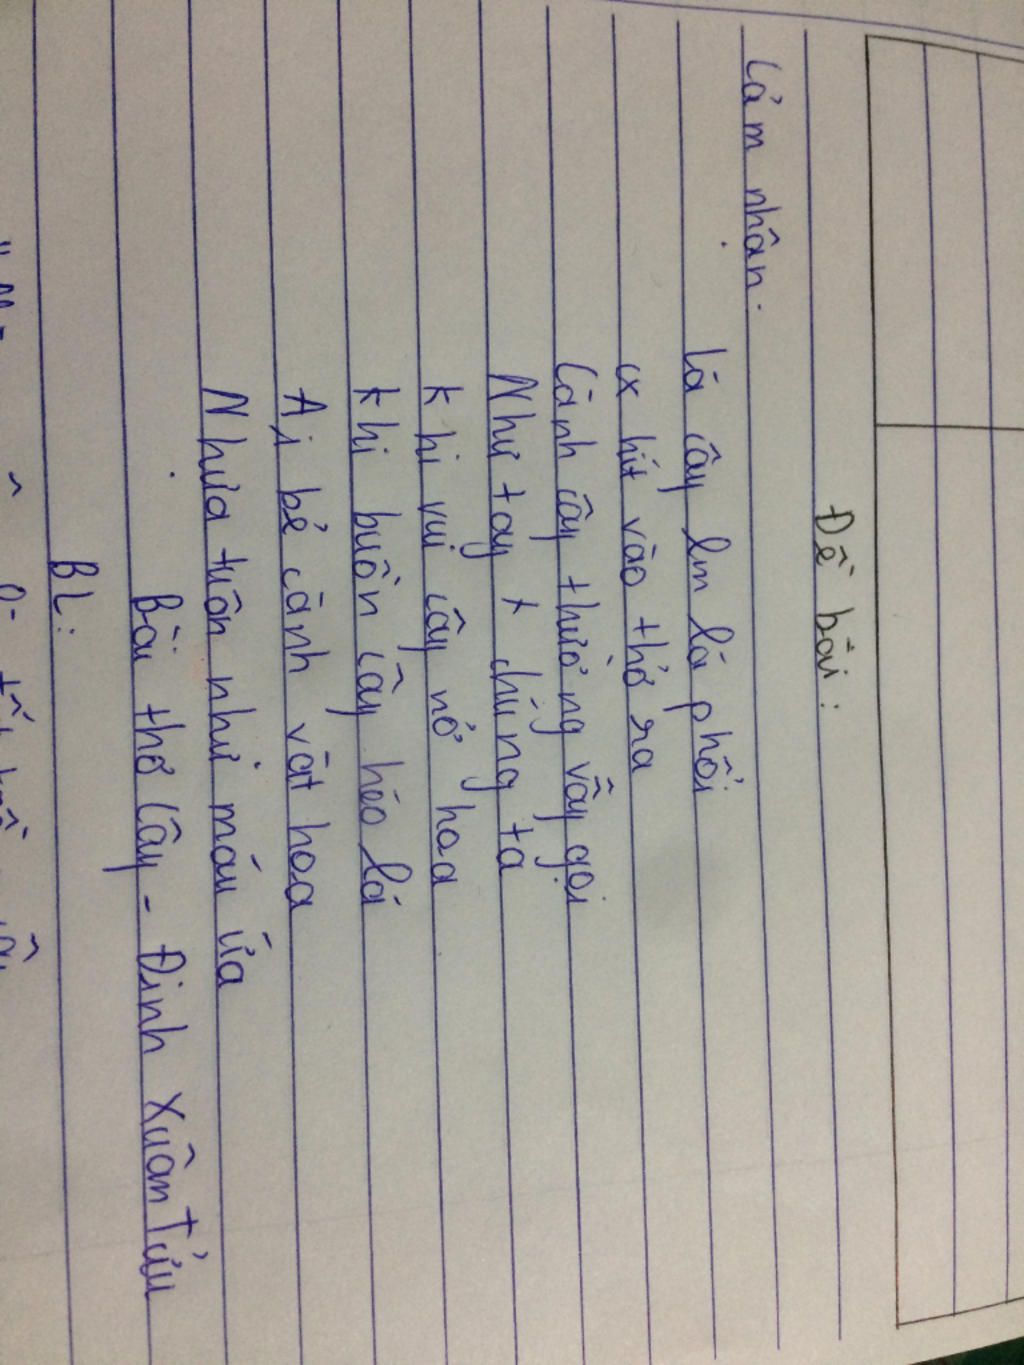 Đề bài:
Cảm nhận.
Lá cây lm lá phổi
cx hít vào thở ra
Cành cây thường vẫy gọi
Như tay + chúng ta
Khi vui cây nở hoa
Khi buồn cây héo lá
Ai bẻ cành vặt hoa
Nhựa tuôn như máu ứa
Bài thơ Cây - Đinh Xuân Tửu
BL: